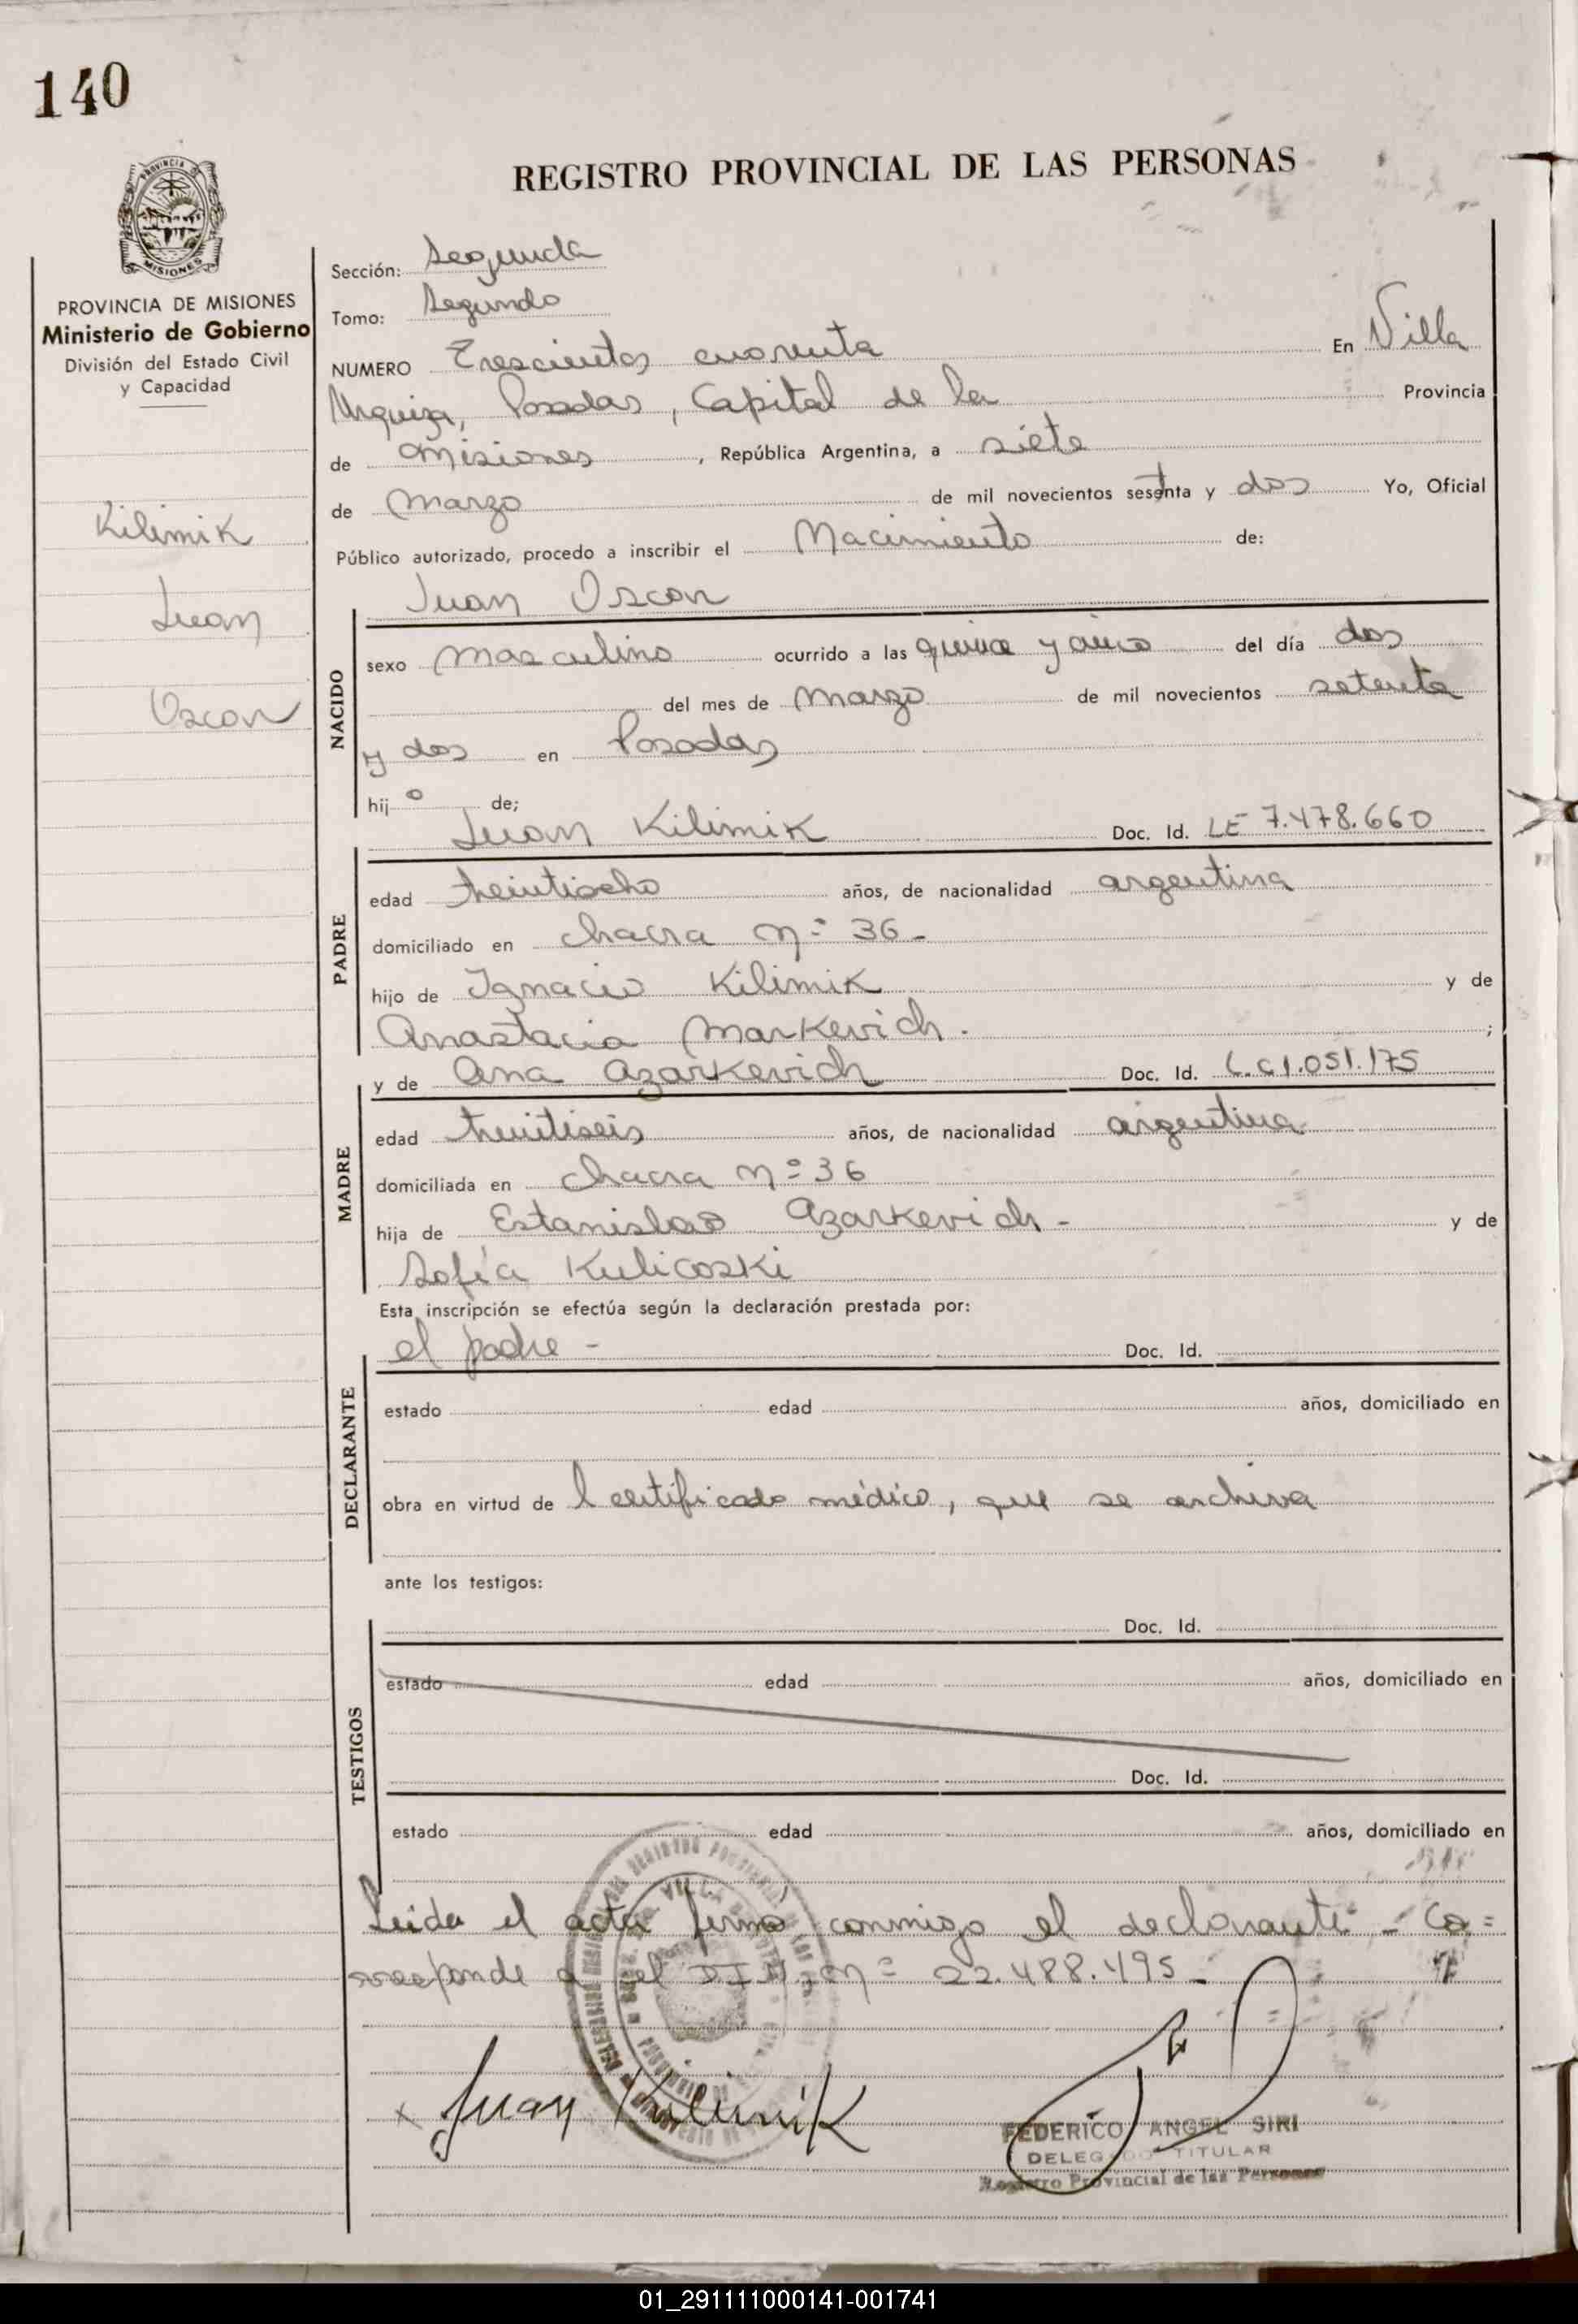 140
REGISTRO PROVINCIAL DE LAS PERSONAS
PROVINCIA
MISIONES
PROVINCIA DE MISIONES
Ministerio de Gobierno
División del Estado Civil
y Capacidad
Kilimik
Juan
Oscar
Sección: Segunda
Tomo: Segundo
NUMERO Trescientos cuarenta En Villa
Urquiza, Posadas, Capital de la Provincia
de Misiones, República Argentina, a siete
de Marzo de mil novecientos setenta y dos Yo, Oficial
Público autorizado, procedo a inscribir el Nacimiento de:
Juan Oscar
NACIDO
sexo masculino ocurrido a las quince y cinco del día dos
del mes de Marzo de mil novecientos setenta
y dos en Posadas
hij o de;
Juan Kilimik Doc. Id. LE 7.478.660
PADRE
edad treintiocho años, de nacionalidad argentina
domiciliado en chacra nº 36-
hijo de Ignacio Kilimik y de
Anastacia Markevich. ;
y de Ana Azarkevich Doc. Id. L.C 1.051.175
MADRE
edad treintiseis años, de nacionalidad argentina
domiciliada en chacra nº 36
hija de Estanislao Azarkevich - y de
Sofía Kulicoski
Esta inscripción se efectúa según la declaración prestada por:
el padre - Doc. Id.
DECLARANTE
estado edad años, domiciliado en
obra en virtud de l certificado médico, que se archiva
ante los testigos:
Doc. Id.
TESTIGOS
estado edad años, domiciliado en
Doc. Id.
estado edad años, domiciliado en
Leida el acta firma conmigo el declarante - Co=
rresponde a el DIM nº 22.488.495-
x Juan Kilimik
FEDERICO ANGEL SIRI
DELEGADO TITULAR
Registro Provincial de las Personas
01_291111000141-001741